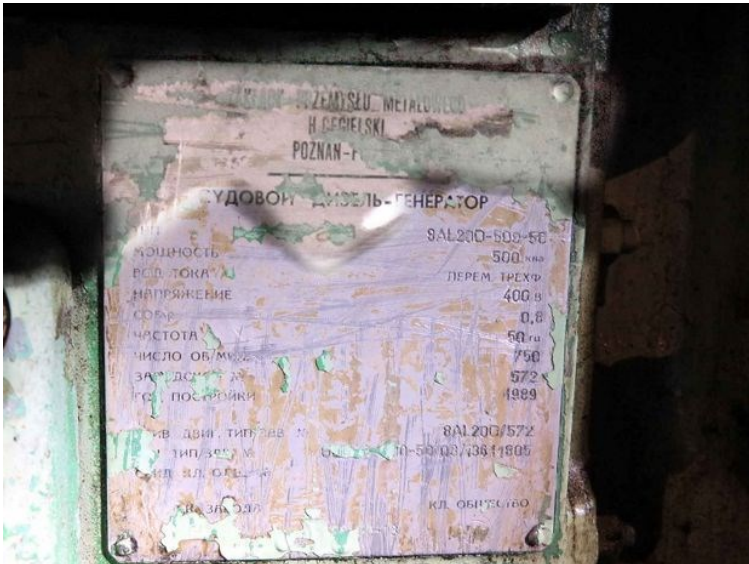 PRZEMYSŁU METALOWEGO
H.CEGIELSKI
POZNAŃ-
СУДОВОЙ ДИЗЕЛЬ-ГЕНЕРАТОР
8AL20D-500-50
МОЩНОСТЬ 500 ква
РОД ТОКА ПЕРЕМ. ТРЕХФ.
НАПРЯЖЕНИЕ 400 в
0,8
ЧАСТОТА 50 гц
ЧИСЛО ОБ/МИН 750
ЗАВОДСКОЙ № 572
ГОД ПОСТРОЙКИ 1989
ДВИГ. ТИП/ЗАВ № 8AL20D/572
ТИП/ЗАВ №
КЛ. ОБЩ.
ЗАВОДА КЛ. ОБЩЕСТВО